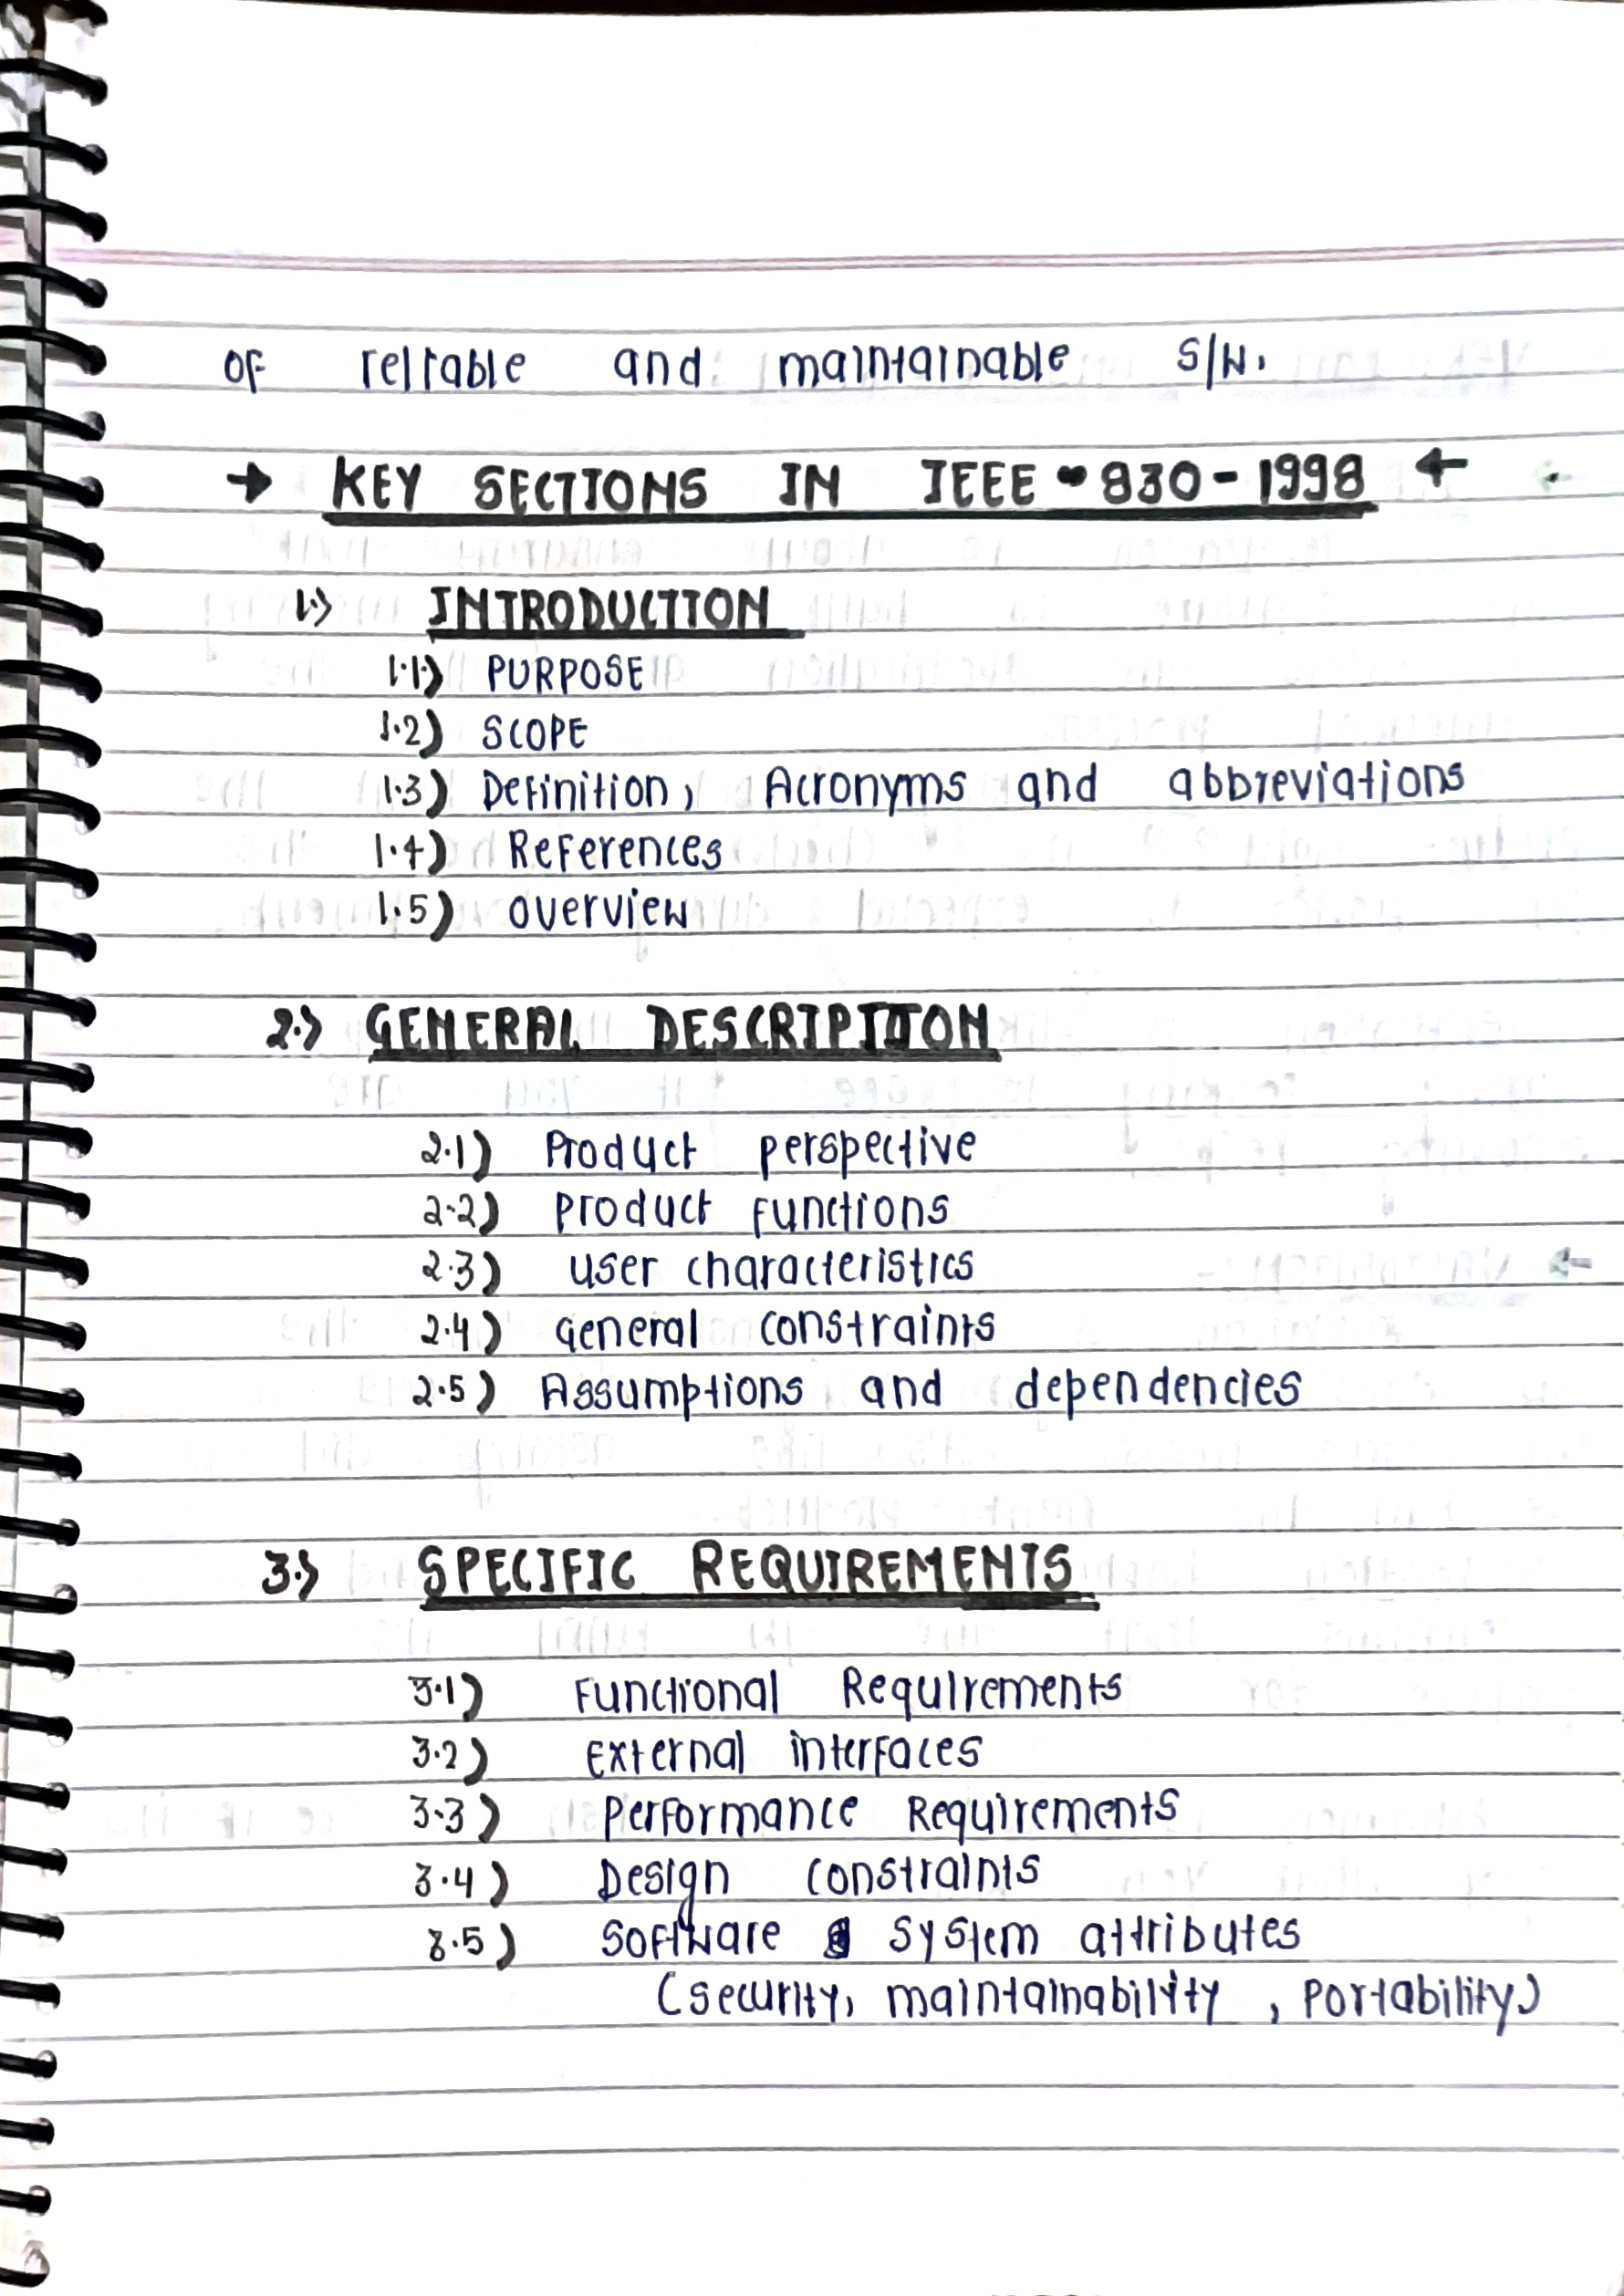 of reliable and maintainable S/W.
→ KEY SECTIONS IN IEEE - 830 - 1998 ←
1.> INTRODUCTION
1.1) PURPOSE
1.2) SCOPE
1.3) Definition, Acronyms and abbreviations
1.4) References
1.5) overview
2.> GENERAL DESCRIPTION
2.1) Product perspective
2.2) product functions
2.3) user characteristics
2.4) general constraints
2.5) Assumptions and dependencies
3.> SPECIFIC REQUIREMENTS
3.1) Functional Requirements
3.2) External interfaces
3.3) Performance Requirements
3.4) Design constraints
3.5) Software system attributes
(security, maintainability, portability)